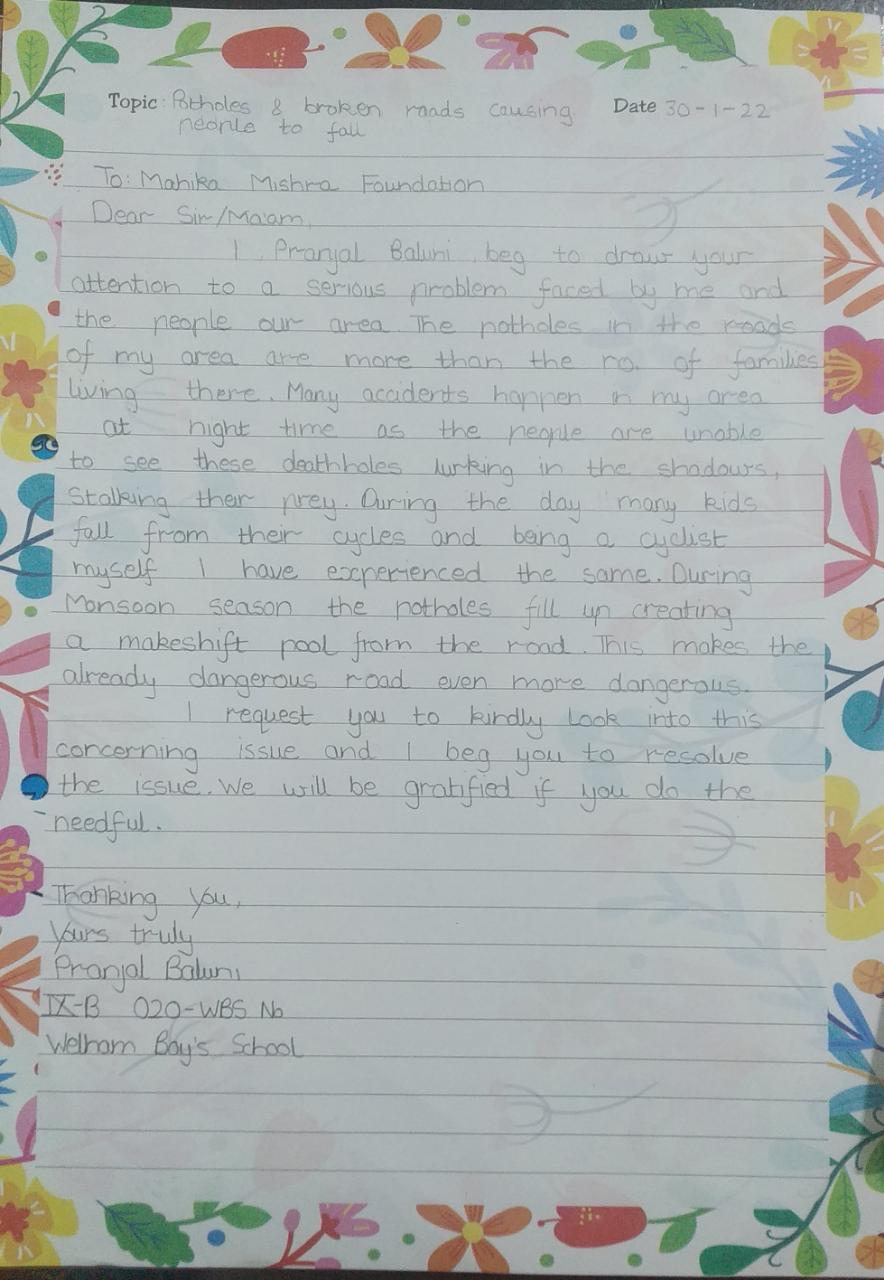 Topic: Potholes & broken roads causing Date 30-1-22
people to fall
To: Mahika Mishra Foundation
Dear Sir/Ma'am,
I, Pranjal Baluni, beg to draw your
attention to a serious problem faced by me and
the people our area. The potholes in the roads
of my area are more than the no. of families
living there. Many accidents happen in my area
at night time as the people are unable
to see these deathholes lurking in the shadows,
Stalking their prey. During the day many kids
fall from their cycles and being a cyclist
myself I have experienced the same. During
Monsoon season the potholes fill up creating
a makeshift pool from the road. This makes the
already dangerous road even more dangerous.
I request you to kindly look into this
concerning issue and I beg you to resolve
the issue. We will be gratified if you do the
needful.
Thanking You,
Yours truly
Pranjal Baluni
IX-B 020-WBS No
Welham Boy's School